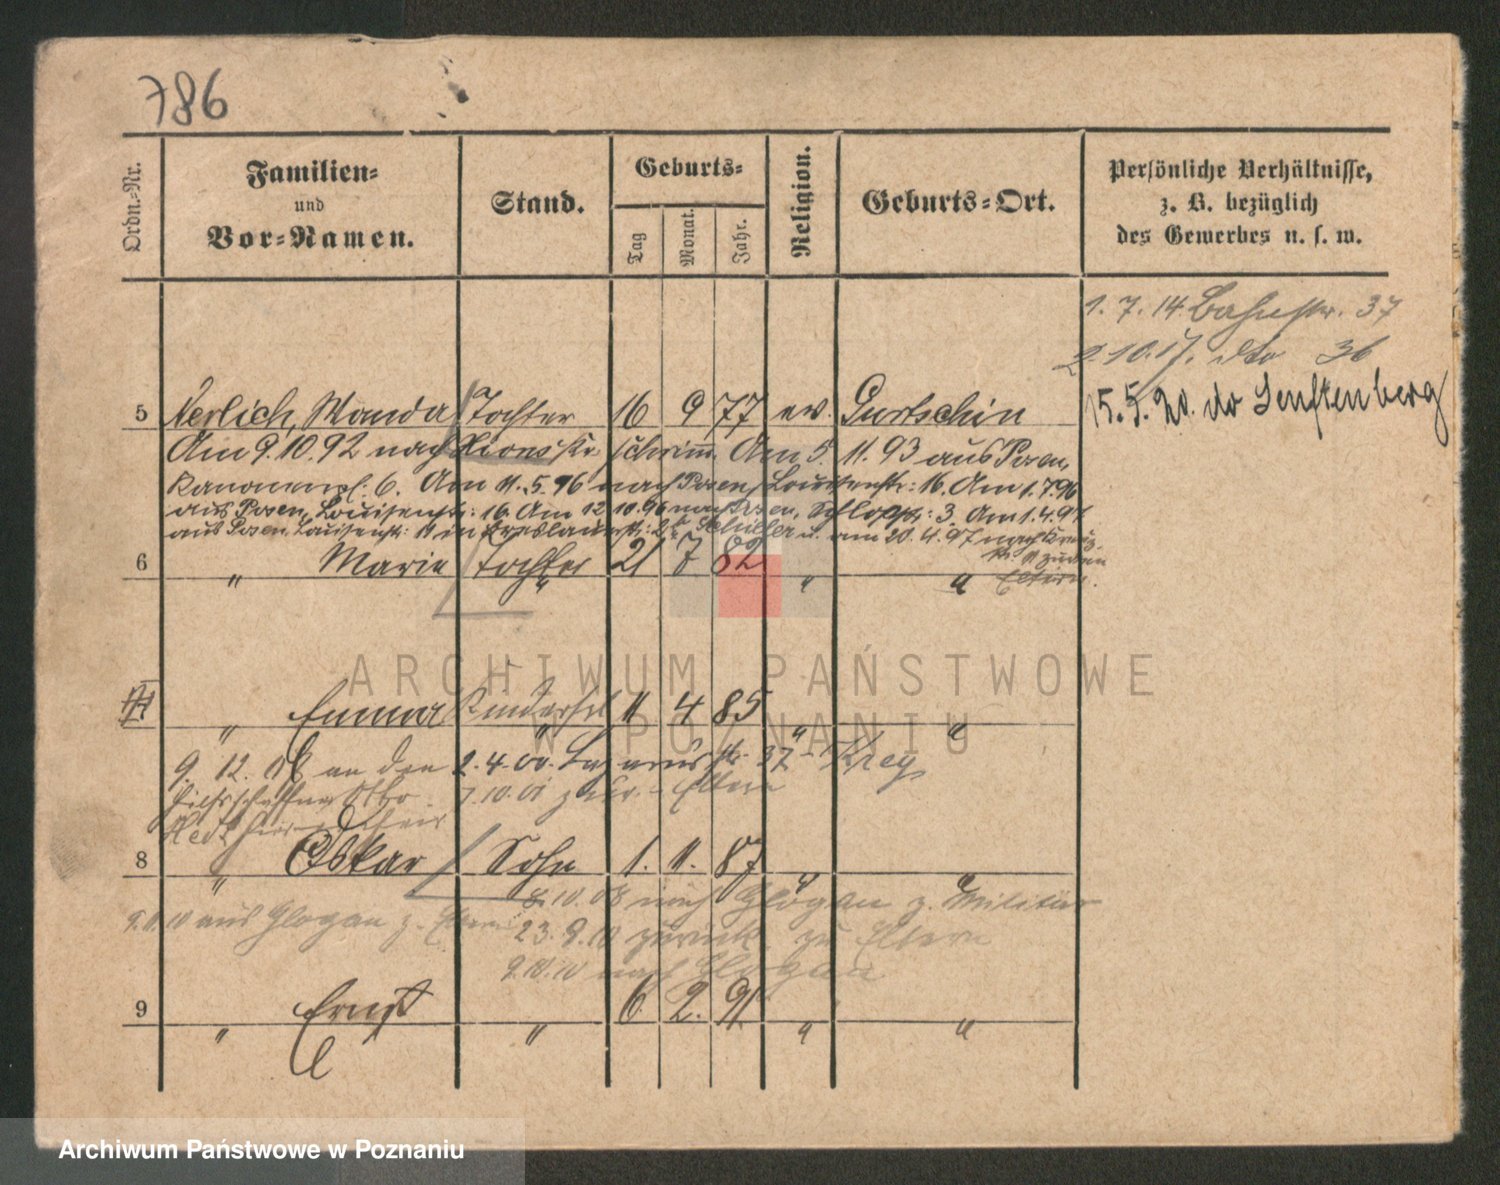 786
Ordn.-Nr.
Familien-
und
Vor-Namen.
Stand.
Geburts-
Tag
Monat.
Jahr.
Religion.
Geburts-Ort.
Persönliche Verhältnisse,
z. B. bezüglich
des Gewerbes u. s. w.
1. 7. 14. Bahnstr. 37
2. 10. 17. dto 36
15. 5. 20. do Senftenberg
5 Nerlich, Wanda Tochter 16 9 77 ev. Gurtschin
Am 9. 10. 92 nach Xions Kr. Schrimm. Am 5. 11. 93 aus Posen,
Kanonenpl: 6. Am 11. 5. 96 nach Posen, Louisenstr: 16. Am 1. 7. 96
aus Posen, Louisenstr: 16. Am 12 10. 96 nach Posen, Schloßstr: 3. Am 1. 4. 97
aus Posen, Louisenstr: in Breslauerstr: Schüller u. am 20. 4. 97 nach Kreuz-
str. zu den
Eltern.
6 " Marie Tochter 21 7 82 " "
" Emma " 11 4 85 " "
9. 12. an den 2. 4. 00. Lazarusstr. 37
7. 10. 01 zur. Eltern
8 " Oskar Sohn 1. 11. 87 " "
8. 10. 08 nach Glogau z. Militär
9. 11. 10 aus Glogau z. Eltern
23. 9. 10 zurück zu Eltern
9. 10. 10 nach Glogau
9 " Ernst " 6. 2. 91 " "
ARCHIWUM PAŃSTWOWE
W POZNANIU
Archiwum Państwowe w Poznaniu